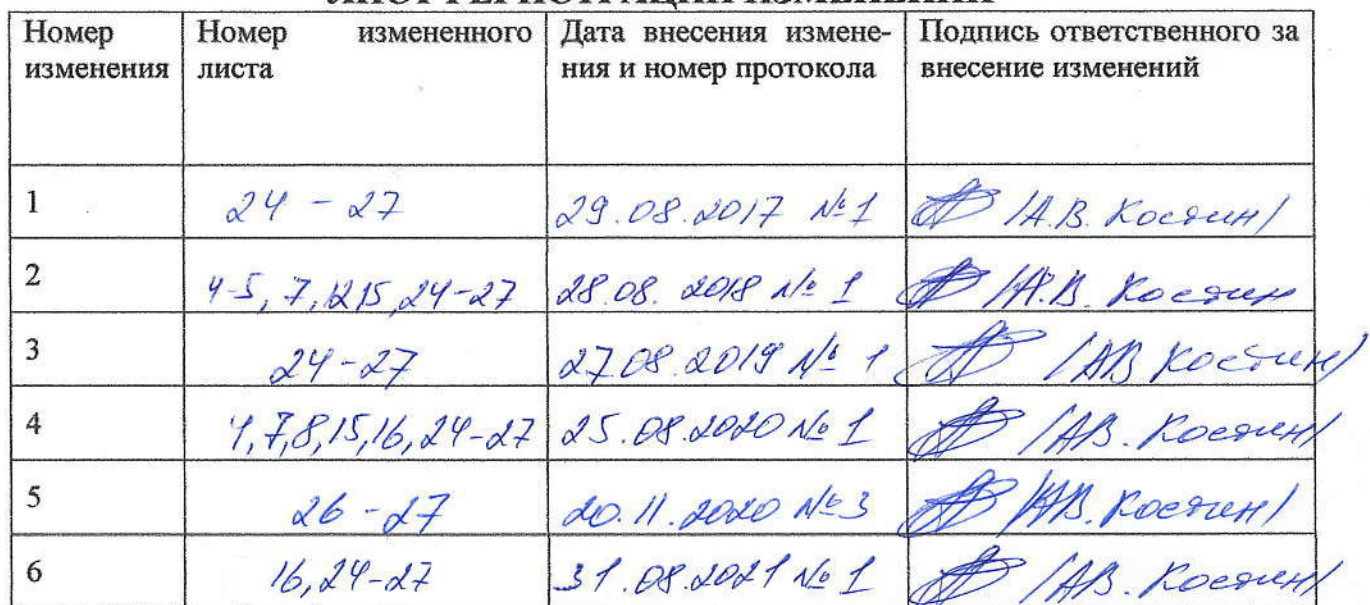 ЛИСТ РЕГИСТРАЦИИ ИЗМЕНЕНИЙ
Номер изменения | Номер измененного листа | Дата внесения измене-ния и номер протокола | Подпись ответственного за внесение изменений
1 | 24 - 27 | 29.08.2017 №1 | /А.В. Костин/
2 | 4-5, 7, 12, 15, 24-27 | 28.08. 2018 №1 | /А.В. Костин
3 | 24-27 | 27.08.2019 №1 | /АВ Костин/
4 | 4,7,8,15,16,24-27 | 25.08.2020 №1 | /АВ. Костин/
5 | 26 - 27 | 20.11.2020 №3 | /АВ. Костин/
6 | 16,24-27 | 31.08.2021 №1 | /АВ. Костин/